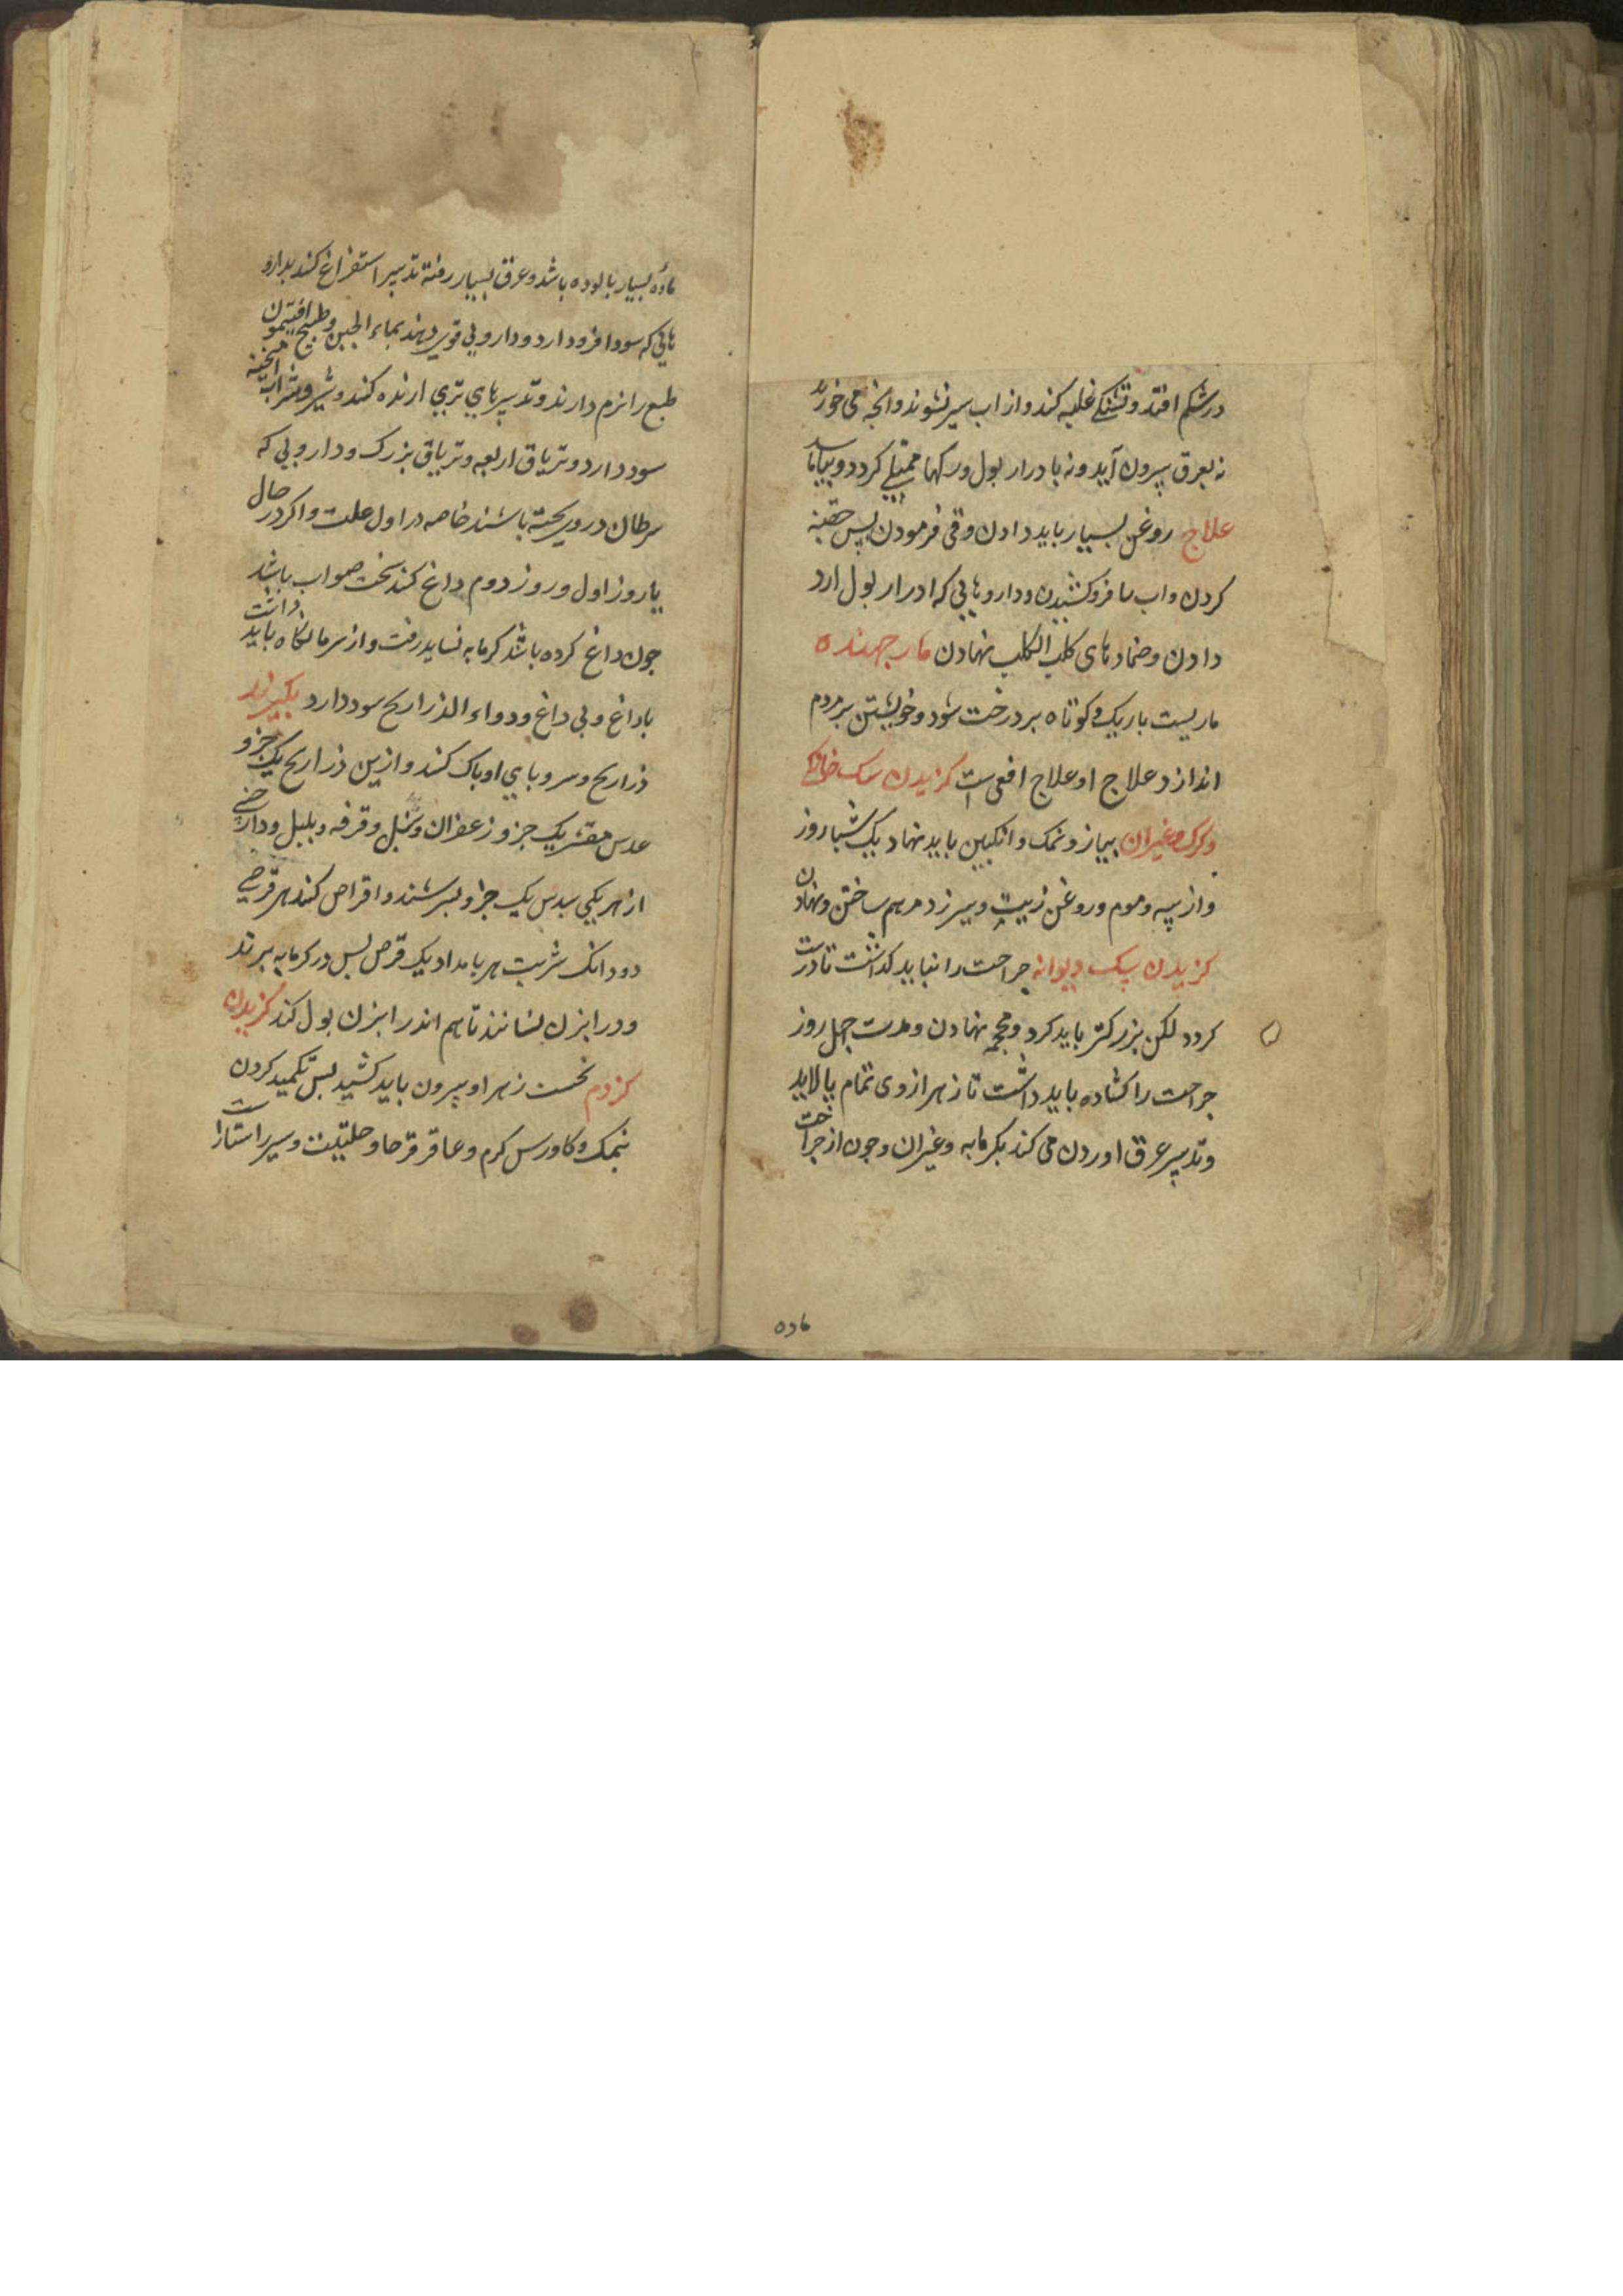 درشکم افتد و تشنکی غلبه کند و از اب سیر نشوند و انچه می خورند
نه بعرق بیرون آید و نه بادرار بول و رکها ممتلی کردد و بیاماسد
علاج روغن بسیار باید دادن و قی فرمودن پس حقنه
کردن و اب فروکشیدن و داروهایی که ادرار بول ارد
دادن و ضمادهای کلب الکلب نهادن مار جهنده
ماریست باریک و کوتاه بر درخت شود و خویشتن بر مردم
اندازد علاج او علاج افعی است کزیدن سک خانکی
و کرک و غیران پیاز و نمک و انکبین باید نهاد یک شبا روز
و از پیه و موم و روغن زیت و بیرزد مرهم ساختن و نهادن
کزیدن سک دیوانه جراحت را نباید کذاشت تا درست
کردد لکن بزرکتر باید کرد و محجمه نهادن و مدت چهل روز
جراحت را کشاده باید داشت تا زهر ازوی تمام پالاید
و تدبیر عرق اوردن می کند بکرمابه و غیران و جون از جراحت
ماده
ماده بسیار بالوده باشد و عرق بسیار رفته تدبیر استفراغ کند بدارو
هایی که سودا فرود ارد و دارویی قوی دهند بماء الجبن و طبیخ افتیمون
طبع را نرم دارند و تدبیرهای تری ارنده کنند و شیر و شراب امیخته
سود دارد و تریاق اربعه و تریاق بزرک و دارویی که
سرطان در وی بخته باشند خاصه در اول علت و اکر در حال
یا روز اول و روز دوم داغ کنند سخت صواب باشد
جون داغ کرده باشد کرمابه نساید رفت و از سرما نکاه باید داشت
با داغ و بی داغ و دواء الذراریح سود دارد بکیرند
ذراریح و سر و بای او باک کنند و ازین ذراریح یک جزو
عدس مقشر یک جزو زعفران و سنبل و قرفه و بلبل و دارچینی
از هر یکی سدس یک جزو بسرشند و اقراص کنند هر قرصی
دو دانک شربت هر بامداد یک قرص بس در کرمابه برند
و در ابزن بنشانند تا هم اندر ابزن بول کند کزیدن
کزدم نخست زهر او بیرون باید کشید بس تکمید کردن
بنمک و کاورس کرم و عاقرقرحا و حلتیت و سیر راست